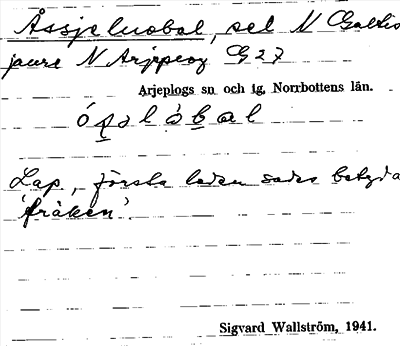 Åssjeluobal, sel N Galtis
jaure N Arjepeog G 27
Arjeplogs sn och tg, Norrbottens län.
Lap, första leden sades betyda
'fräken'.
Sigvard Wallström, 1941.